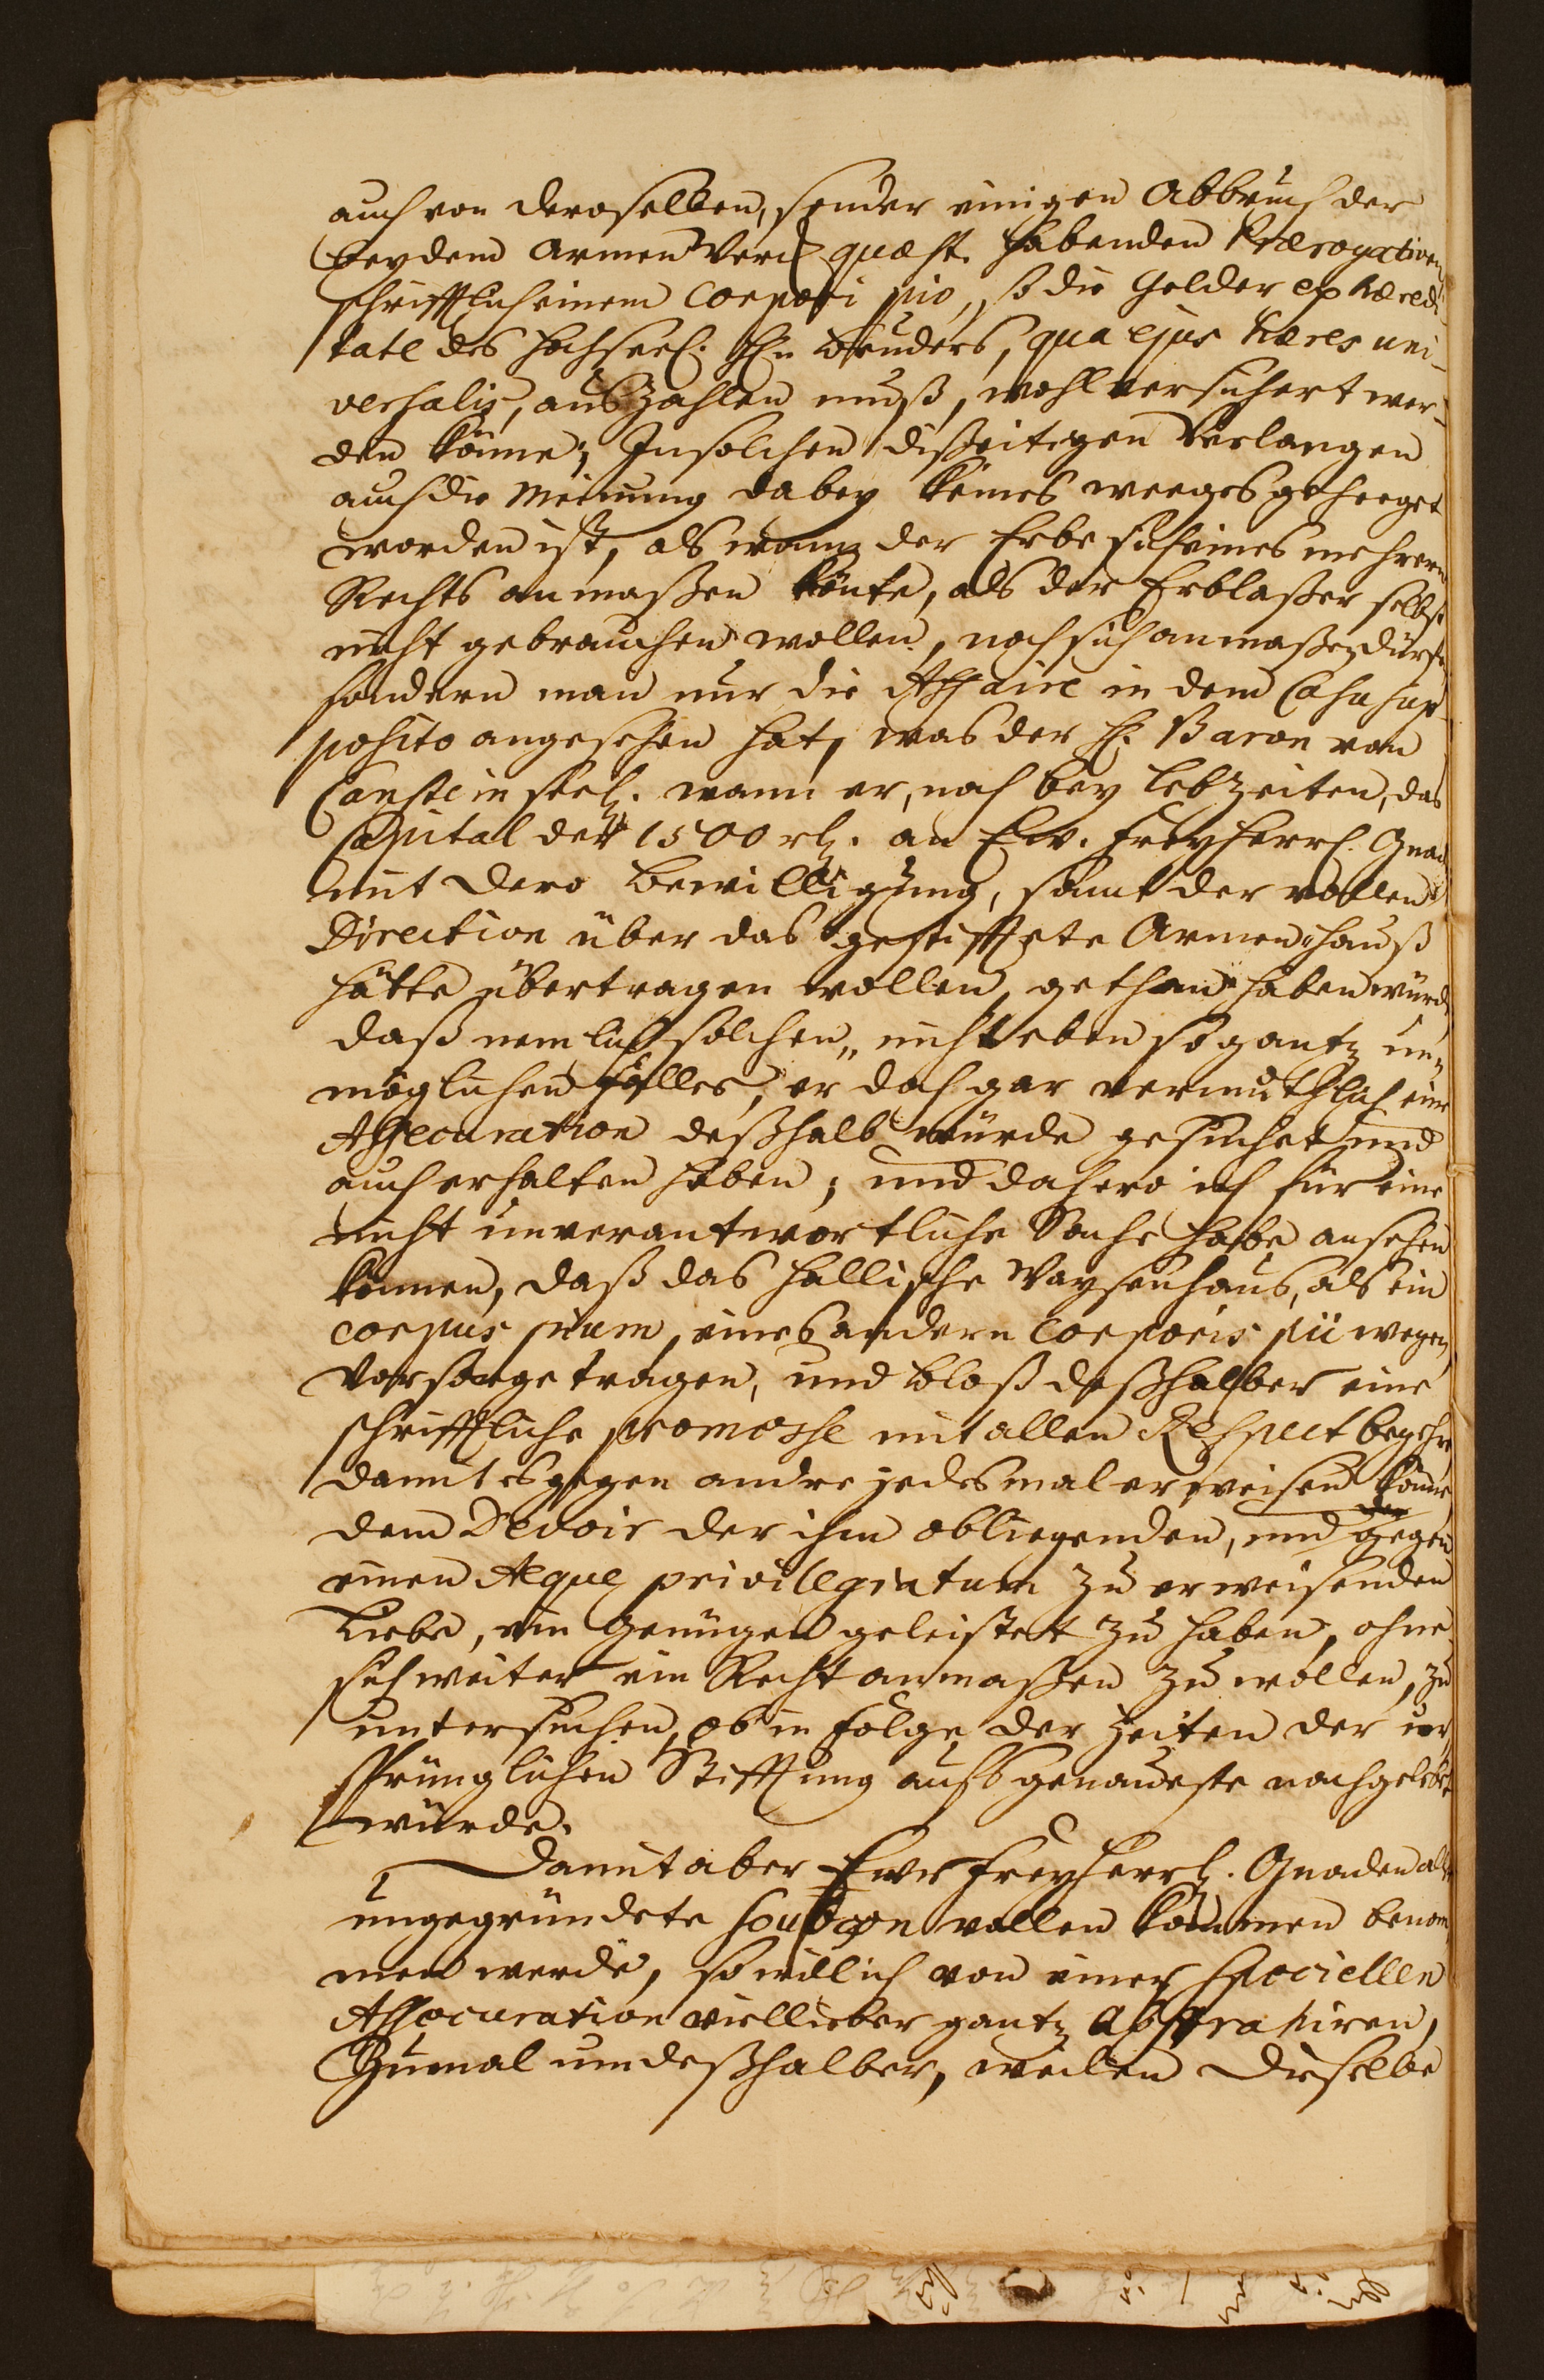 auch von deroselben, sonder einigen Abbruch der
bey dem Armen Werck quæst. habenden Prærogativen
schrifftlich einem Corpori pio, so die Gelder ex hæredi-
tate des Hochseel. Hn Bruders, qua ejus hæres uni-
versalis, auszahlen muß, wohl versichert wer-
den könne; In solchen disseitigen Verlangen
auch die Meinung dabey keines weeges geheeget
worden ist, als wann der Erbe sich eines mehrern
Rechts anmaßen könte, als der Erblaßer selbst
nicht gebrauchen wollen, noch sich anmaßen dürfen
sondern man nur die Affaire in dem Casu sup-
posito angesehen hat, was der H. Baron von
Canstein seel. wann er, noch bey Lebzeiten, das
Capital der 1500 rl. an Ew. Freyherrl. Gnad.
mit dero Bewilligung, samt der vollen
Direction über das gestifftete Armen-Hauß
hätte übertragen wollen, gethan haben würde
daß nemlich solchen, nicht eben so gantz un-
möglichen Falles, er doch gar vermuthlich eine
Assecuration deßhalb würde gesuchet und
auch erhalten haben; und dahero ich für eine
nicht unverantwortliche Sache habe ansehen
können, daß das Hallische Waysenhaus, als ein
corpus pium, eines andern Corporis pii wegen
Vorsorge tragen, und bloß deßhalber eine
schrifftliche promesse mit allen Respect begehre
damit es gegen andre jedesmal erweisen könne
dem Devoir der ihm obliegenden, und der gegen
einen Aeque privilegiatum zu erweisenden
Liebe, ein Genügen geleistet zu haben, ohne
sich weiter ein Recht anmaßen zu wollen, zu
untersuchen, ob in Folge der Zeiten der ur-
sprünglichen Stifftung aufs genaueste nachgelebet
würde.
Damit aber Ewr Freyherrl. Gnaden alle
ungegründete soubçon vollen kommen benom
men werde, so will ich von einer speciellen
Assecuration viel lieber gantz abstrahiren,
Zumal um deßhalber, weilen dieselbe